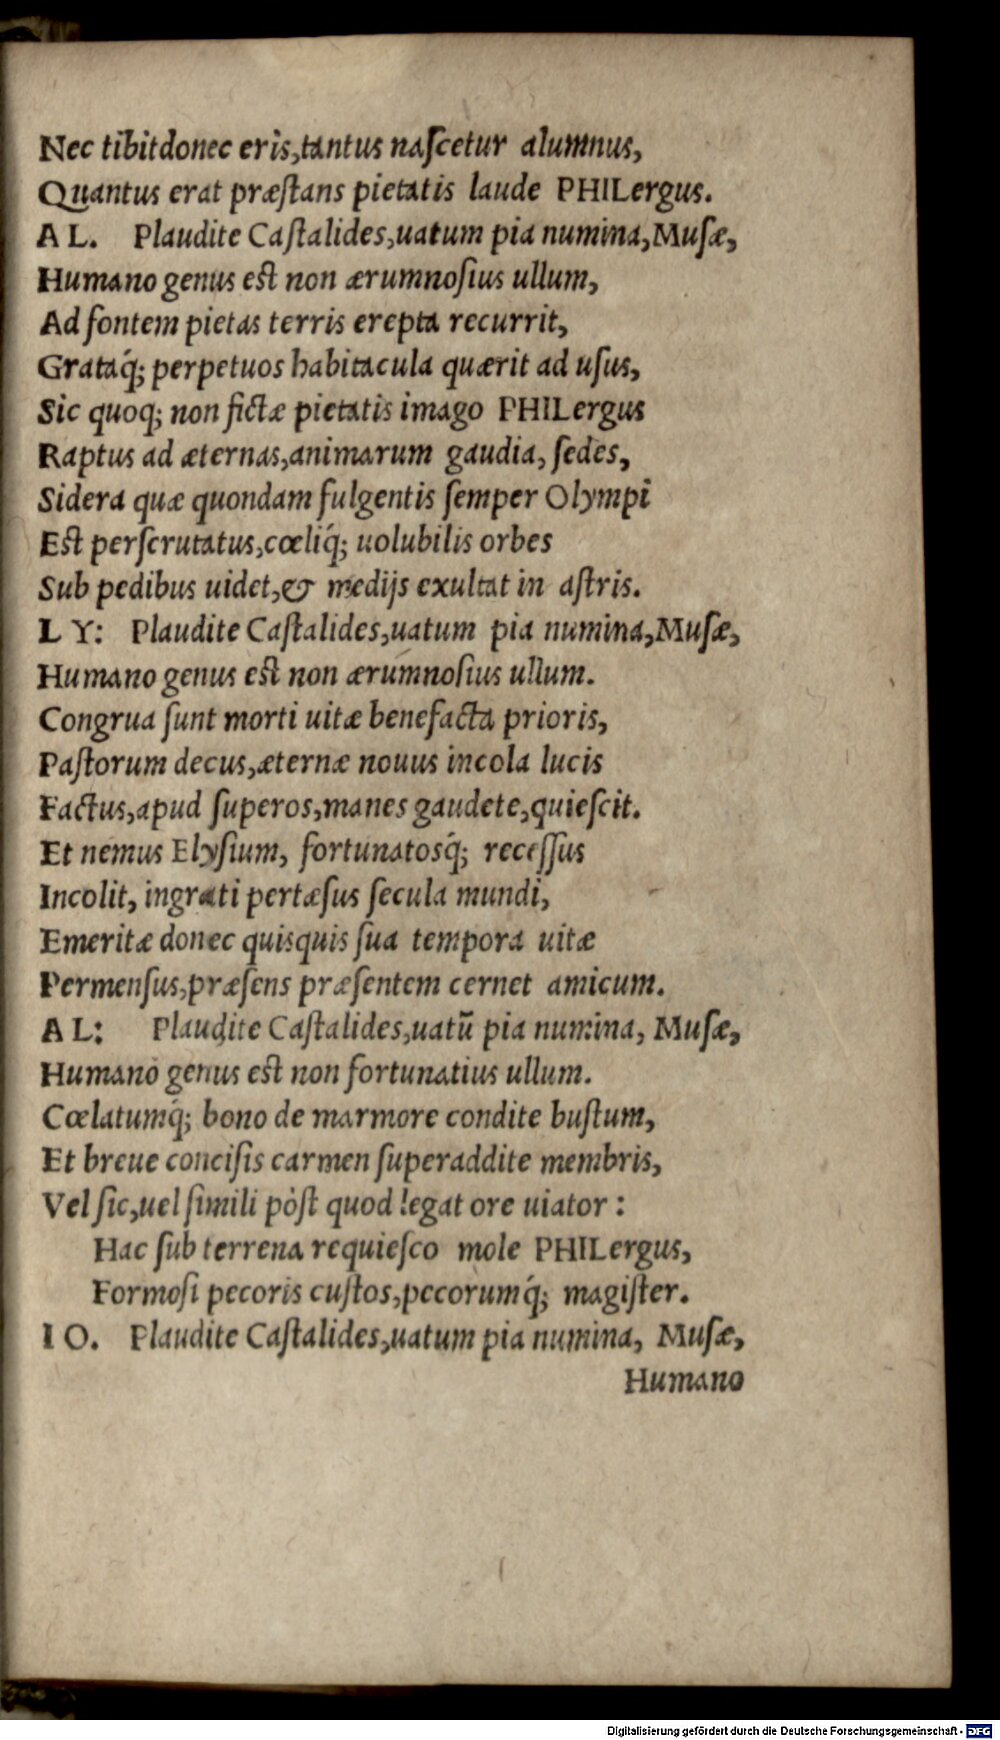 Nec tibit donec eris, tantus naſcetur alumnus,
Quantus erat præſtans pietatis laude PHILergus.
AL. Plaudite Caſtalides, uatum pia numina, Muſæ,
Humano genus eſt non ærumnoſius ullum,
Ad fontem pietas terris erepta recurrit,
Grataq́; perpetuos habitacula quærit ad uſus,
Sic quoq; non fictæ pietatis imago PHILergus
Raptus ad æternas, animarum gaudia, ſedes,
Sidera quæ quondam fulgentis ſemper Olympi
Eſt perſcrutatus, cœliq́; uolubilis orbes
Sub pedibus uidet, & medijs exultat in aſtris.
LY: Plaudite Caſtalides, uatum pia numina, Muſæ,
Humano genus eſt non ærumnoſius ullum.
Congrua ſunt morti uitæ benefacta prioris,
Paſtorum decus, æternæ nouus incola lucis
Factus, apud ſuperos, manes gaudete, quieſcit.
Et nemus Elyſium, fortunatosq́; receſſus
Incolit, ingrati pertæſus ſecula mundi,
Emeritæ donec quisquis ſua tempora uitæ
Permenſus, præſens præſentem cernet amicum.
AL: Plaudite Caſtalides, uatū pia numina, Muſæ,
Humano genus eſt non fortunatius ullum.
Cœlatumq́; bono de marmore condite buſtum,
Et breue conciſis carmen ſuperaddite membris,
Vel ſic, uel ſimili pòſt quod legat ore uiator:
Hac ſub terrena requieſco mole PHILergus,
Formoſi pecoris cuſtos, pecorumq́; magiſter.
IO. Plaudite Caſtalides, uatum pia numina, Muſæ,
Humano
Digitalisierung gefördert durch die Deutsche Forschungsgemeinschaft - DFG